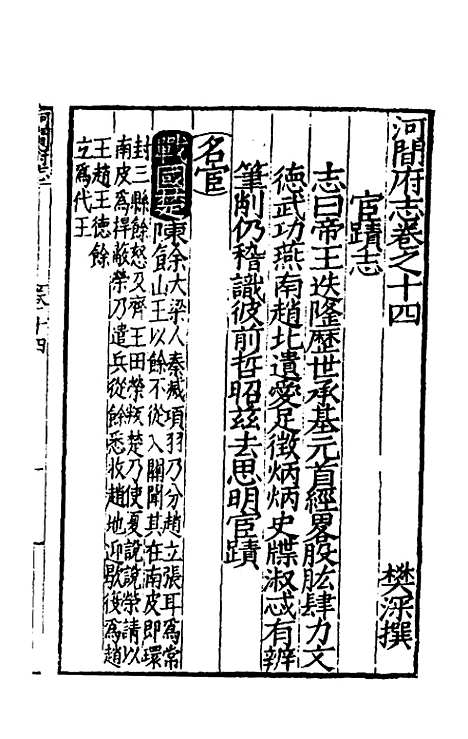 河間府志卷之十四
樊深撰
宦蹟志
志曰帝王迭隆歷世承基元首經畧股肱肆力文
德武功燕南趙北遺愛足徵炳炳史牒淑忒有辨
筆削仍稽識彼前哲昭茲去思明宦蹟
名宦
戰國楚陳餘大梁人秦滅項羽乃分趙立張耳為常
山王以餘不從入關聞其在南皮即環
封三縣餘怒及齊王田榮叛楚乃使夏說說榮請以
南皮為捍蔽榮乃遣兵從餘悉收趙地迎歇復為趙
王趙王德餘
立為代王